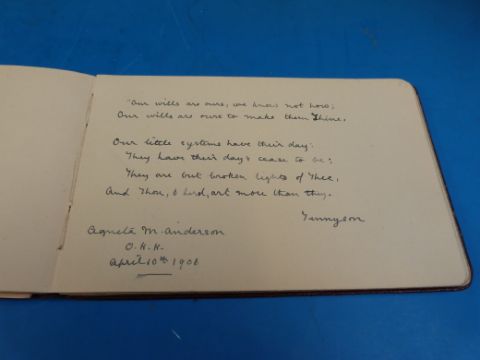 "Our wills are ours, we know not how;
Our wills are ours to make them Thine.
Our little systems have their day:
They have their day & cease to be:
They are but broken lights of Thee,
And Thou, O Lord, art more than they.
Tennyson
Agneta M. Anderson
O.H.H.
April 10th 1908